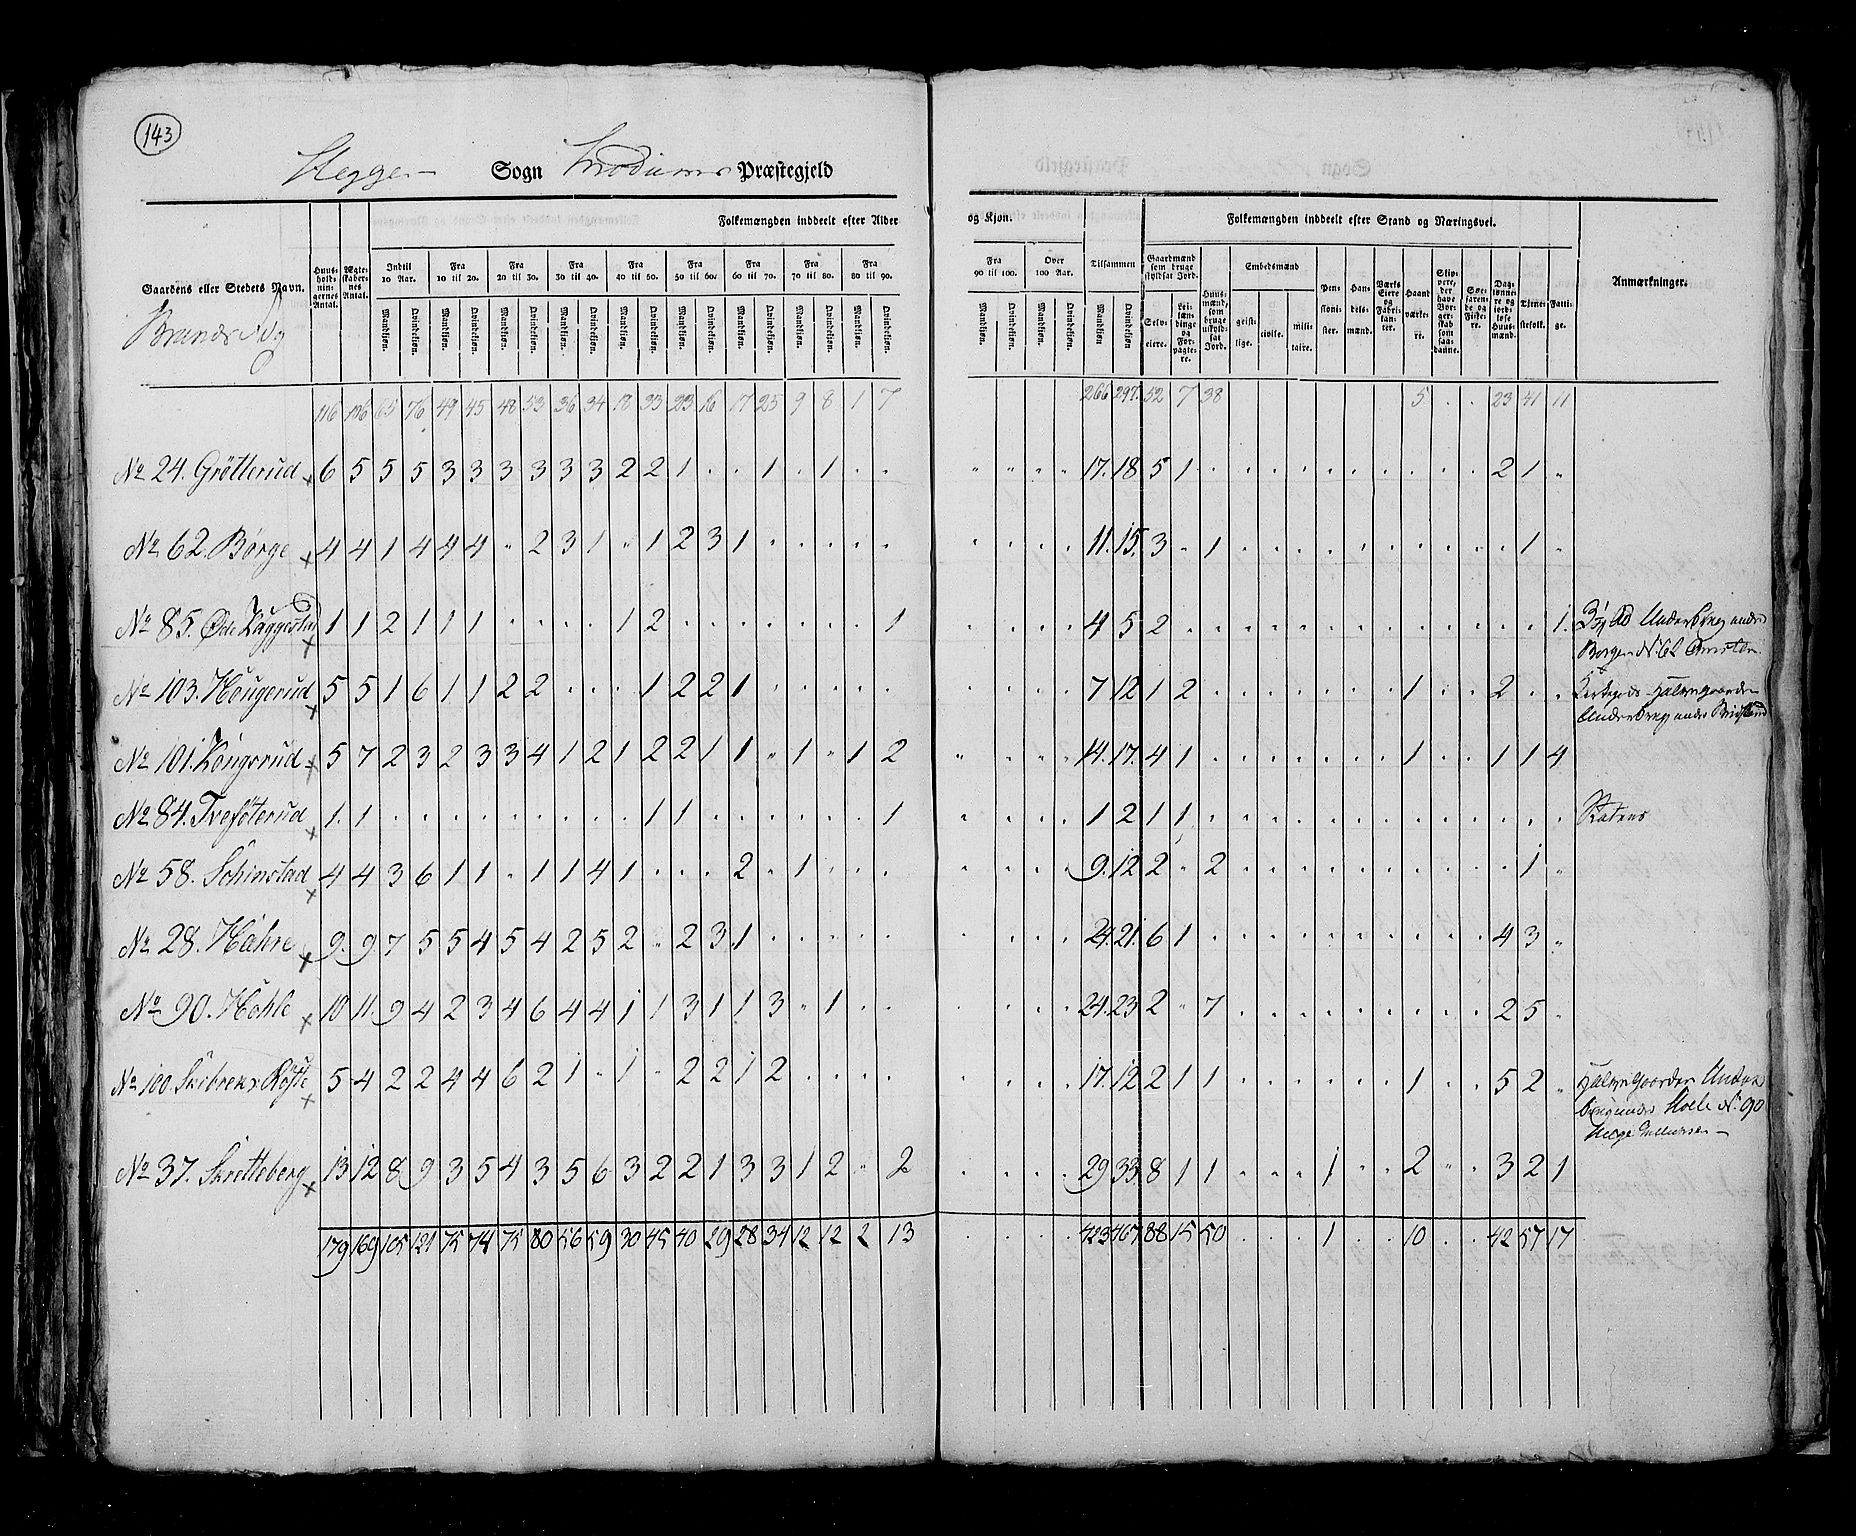 143
Hegge Sogn Præstegjeld
Folkemængden inddeelt efter Alder og Kjøn. Folkemængden inddeelt efter Stand og Næringsvei.
Gaardens eller Stedets Navn. Huusholdningernes Antal. Ægteskabernes Antal. Indtil 10 Aar. Fra 10 til 20. Fra 20 til 30. Fra 30 til 40. Fra 40 til 50. Fra 50 til 60. Fra 60 til 70. Fra 70 til 80. Fra 80 til 90. Fra 90 til 100. Over 100 Aar. Tilsammen Gaardmænd som bruge skyldsat Jord. Huusmænd, som bruge uskyldsat Jord. Embedsmænd Pensionister. Handelsmænd. Værks Eiere og Fabrikanter. Haandværkere. Skippere, der have Borgerskab som saadanne. Søefarende og Fiskere. Daglønnere og jordløse Huusmænd. Tienestefolk. Fattige. Anmærkninger.
Mandkjøn. Qvindekjøn. Mandkjøn. Qvindekjøn. Mandkjøn. Qvindekjøn. Mandkjøn. Qvindekjøn. Mandkjøn. Qvindekjøn. Mandkjøn. Qvindekjøn. Mandkjøn. Qvindekjøn. Mandkjøn. Qvindekjøn. Mandkjøn. Qvindekjøn. Mandkjøn. Qvindekjøn. Mandkjøn. Qvindekjøn. Mandkjøn Qvindekjøn Selveiere. Leilændinge og Forpagtere. geistlige. civile. militaire.
116 106 65 76 49 45 48 53 36 34 18 33 23 16 17 25 9 8 1 7 266 297 52 7 38 5 . . 23 41 11
No 24. Grötterud 6 5 5 5 3 3 3 3 3 3 2 2 1 . . 1 . 1 . . 17. 18 5 1 2 1
No 62. Børge 4 4 1 4 4 4 . 2 3 1 . 1 2 3 1 . . . . . 11. 15. 3 . 1 1
No 85. Øde 1 1 2 1 1 1 . . . . 1 2 . . . . . . . 1 4 5 2 1.
Underbrug under
No 62
No 103. Hougerud 5 5 1 6 1 1 2 2 . . . 1 2 2 1 . . . . . 7 12 1 2 1 2
Underbrug under
No 101. Kongsrud 5 7 2 3 2 3 3 4 1 2 1 2 2 1 1 . 1 . 1 2 14. 17. 4 1 1 1 1 4
No 84. Tveføterud 1. 1 . . . . . . . . . 1 1 . . . . . . 1 1 2 1 1
No 58. Schinstad 4 4 3 6 1 1 . 1 1 4 1 . . . 2 . 1 . . . 9. 12 2 . 2 1
No 28. Hahre 9. 9. 7 5 5 4 5 4 2 5 2 . 2 3 1 . . . . . 24. 21. 6 1 4 3
No 90. Hohle 10 11. 9 4 2 3 4 6 4 4 1 1 3 1 1 3 . 1 . . 24. 23 2 . 7 2 5
No 100. 5 4 2 2 4 4 6 2 1 . 1 . 2 2 1 2 . . . . 17. 12 2 1 1 1 5 2
No 90
No 37. Skretteberg 13 12 8 9 3 5 4 3 5 6 3 2 2 1 3 3 1 2 . 2 29 33. 8 1 1 1 2 3 2 1
179 169 105 121 75 74 75 80 56 59 30 45 40 29 28 34 12 12 2 13 423 467 88 15 50 1 10 42 57 17